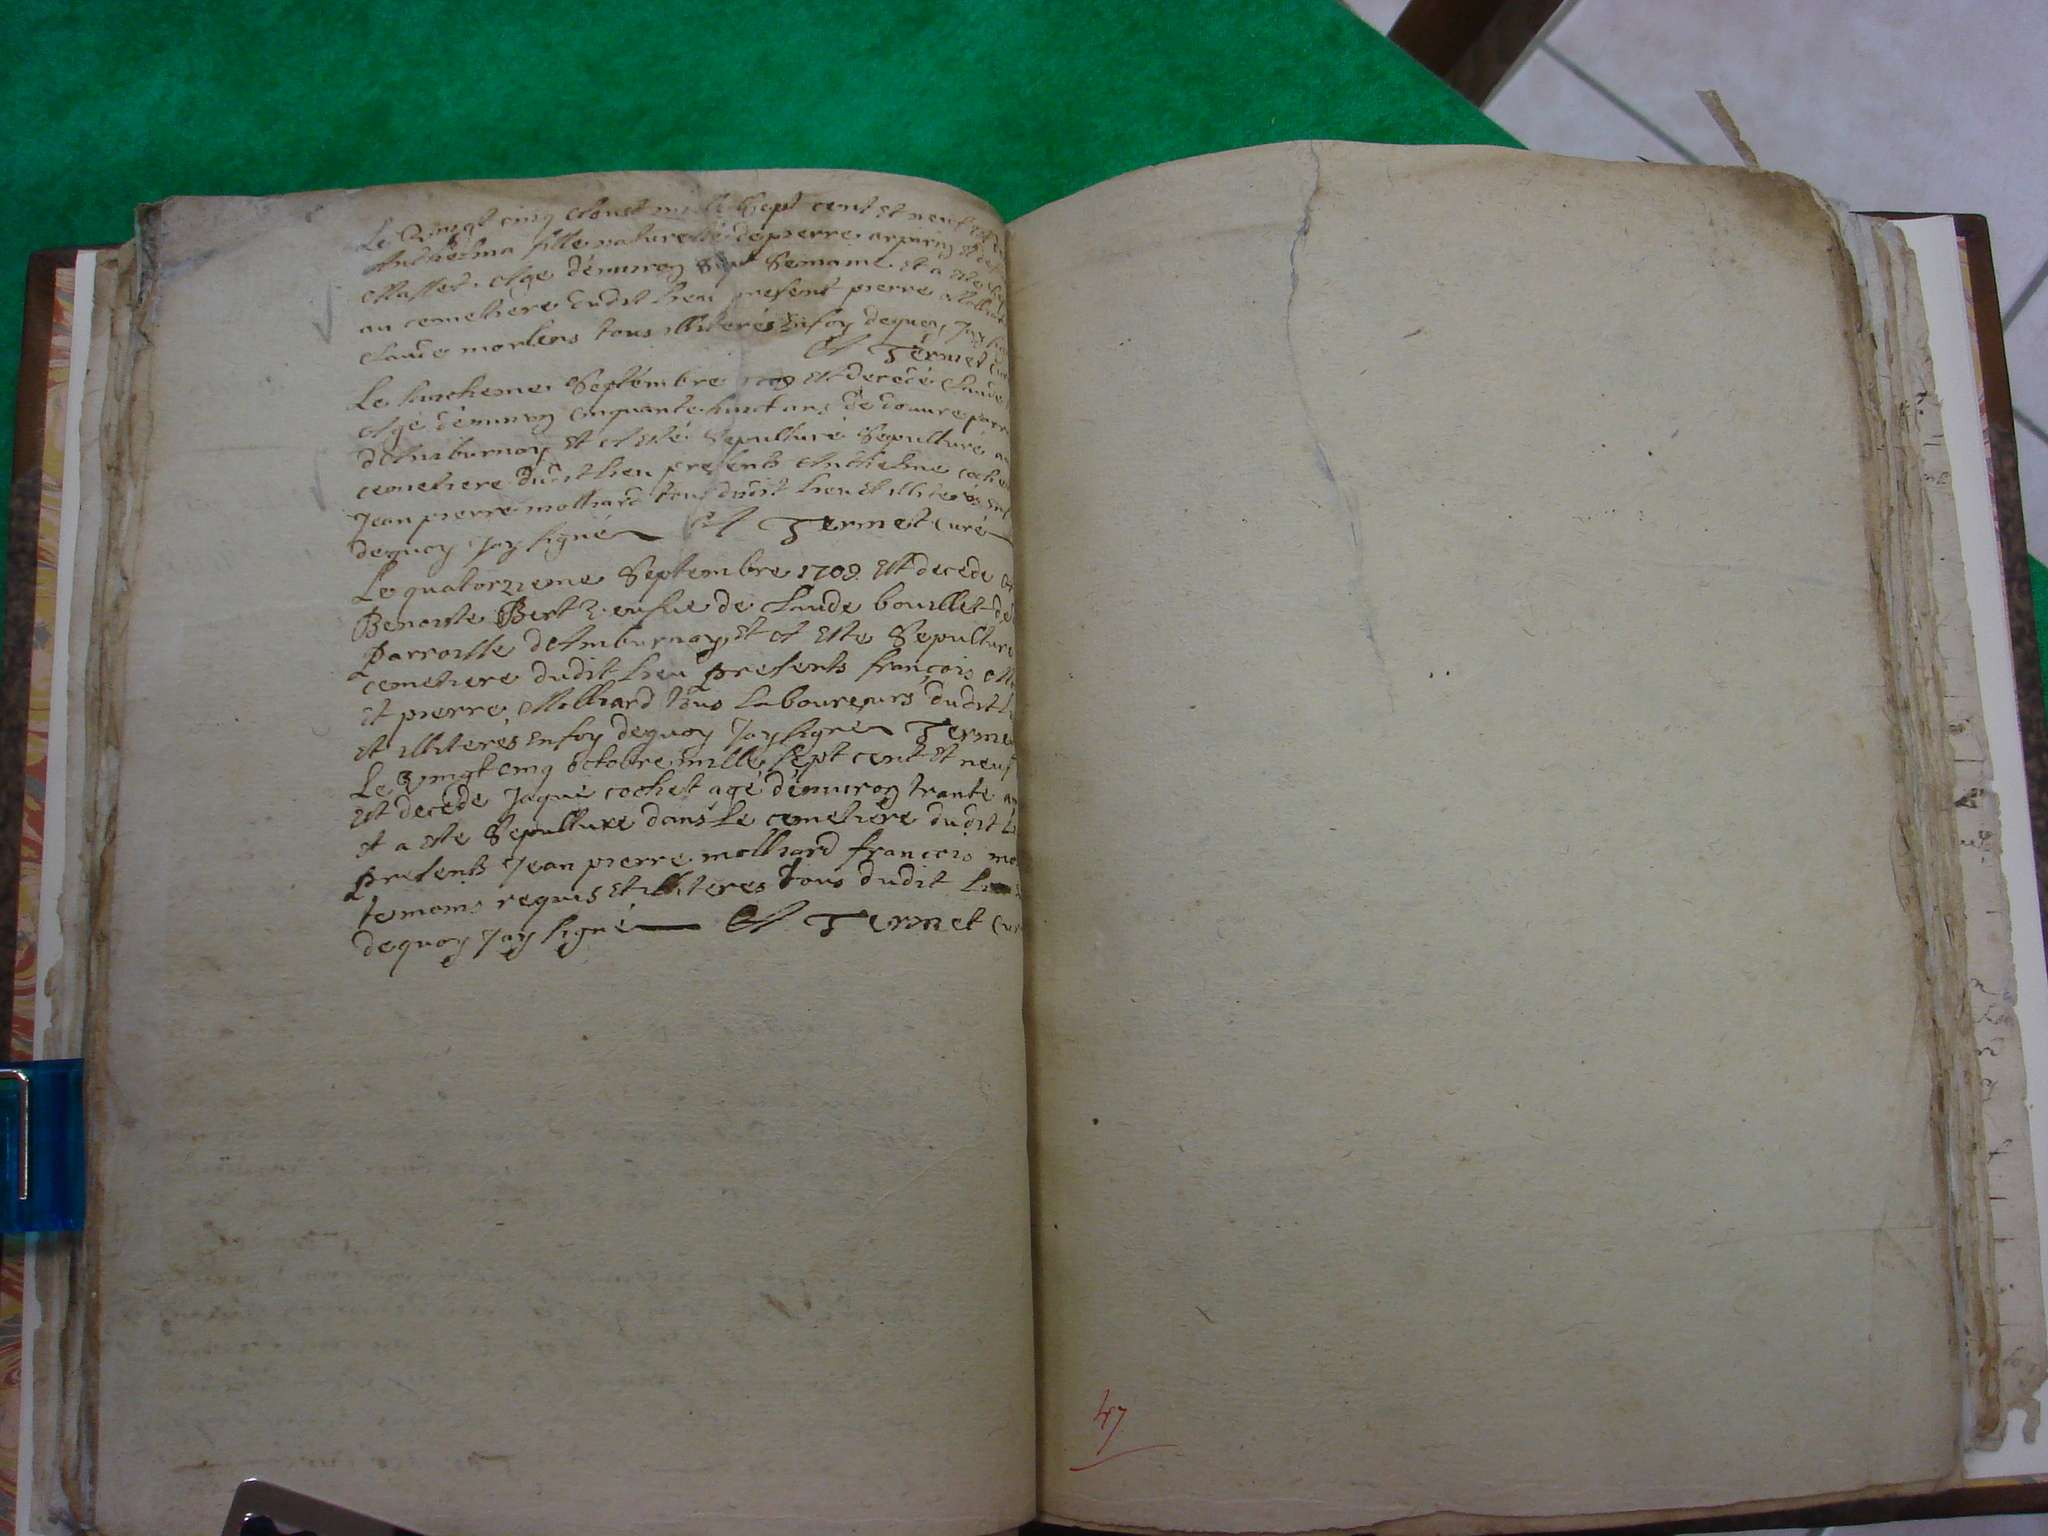 Le Vingt cinq Aoust mille Sept cent et neuf est
fille naturelle de pierre
Agé d'enuiron Sept Semaine et a este
au cemetiere dudit lieu present pierre Molliard
claude morlens tous illiterés En foy dequoy Jay
A Termet Curé
Le huictieme Septembre 1709 est decedé Claude
Agé d'enuiron cinquante huict ans de douure parr
d'Amburnay Et A esté Sepulturé Sepulturé au
cemetiere dudit lieu presents Anthelme cochet
Jean pierre molliard tous dudit lieu et illiterés en
dequoy Jay signé A Termet Curé
Le quatorzieme Septembre 1709. Est decede
Benoiste Bert de Claude bouillet de
Parroisse d'Amburnay, Et A Este Sepulture
cemetiere dudit lieu presents françois Mo
Et pierre Molliard tous Laboureurs dudit L
Et illiterés en foy dequoy Jay signé Termet
Le Vingt cinq octobre mille sept cent Et neuf
Est decede Jaque cochet agé d'enuiron trante an
Et a Este Sepulture dans Le cemetiere dudit Li
presents Jean pierre molliard françois mo
temoins requis Et illiteres tous dudit Lieu
dequoy Jay signé A Termet Cur
47